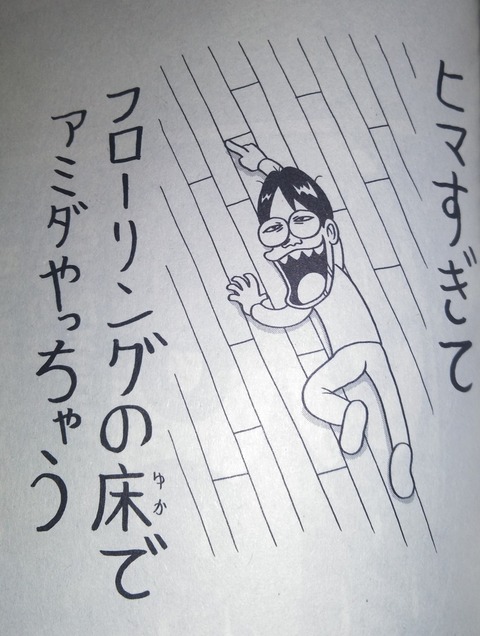 ヒマすぎて
フローリングの床で
ゆか
アミダやっちゃう